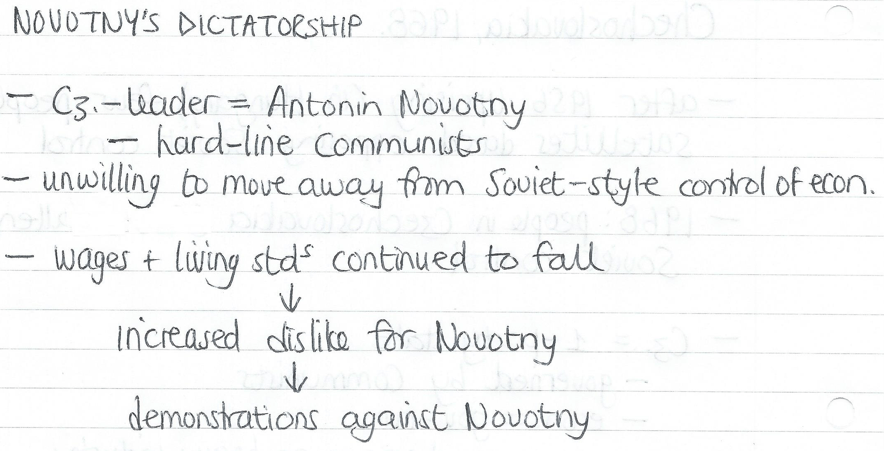 NOVOTNY'S DICTATORSHIP
- Cz.-leader = Antonin Novotny
- hard-line Communists
- unwilling to move away from Soviet-style control of econ.
- wages + living stds continued to fall
↓
increased dislike for Novotny
↓
demonstrations against Novotny